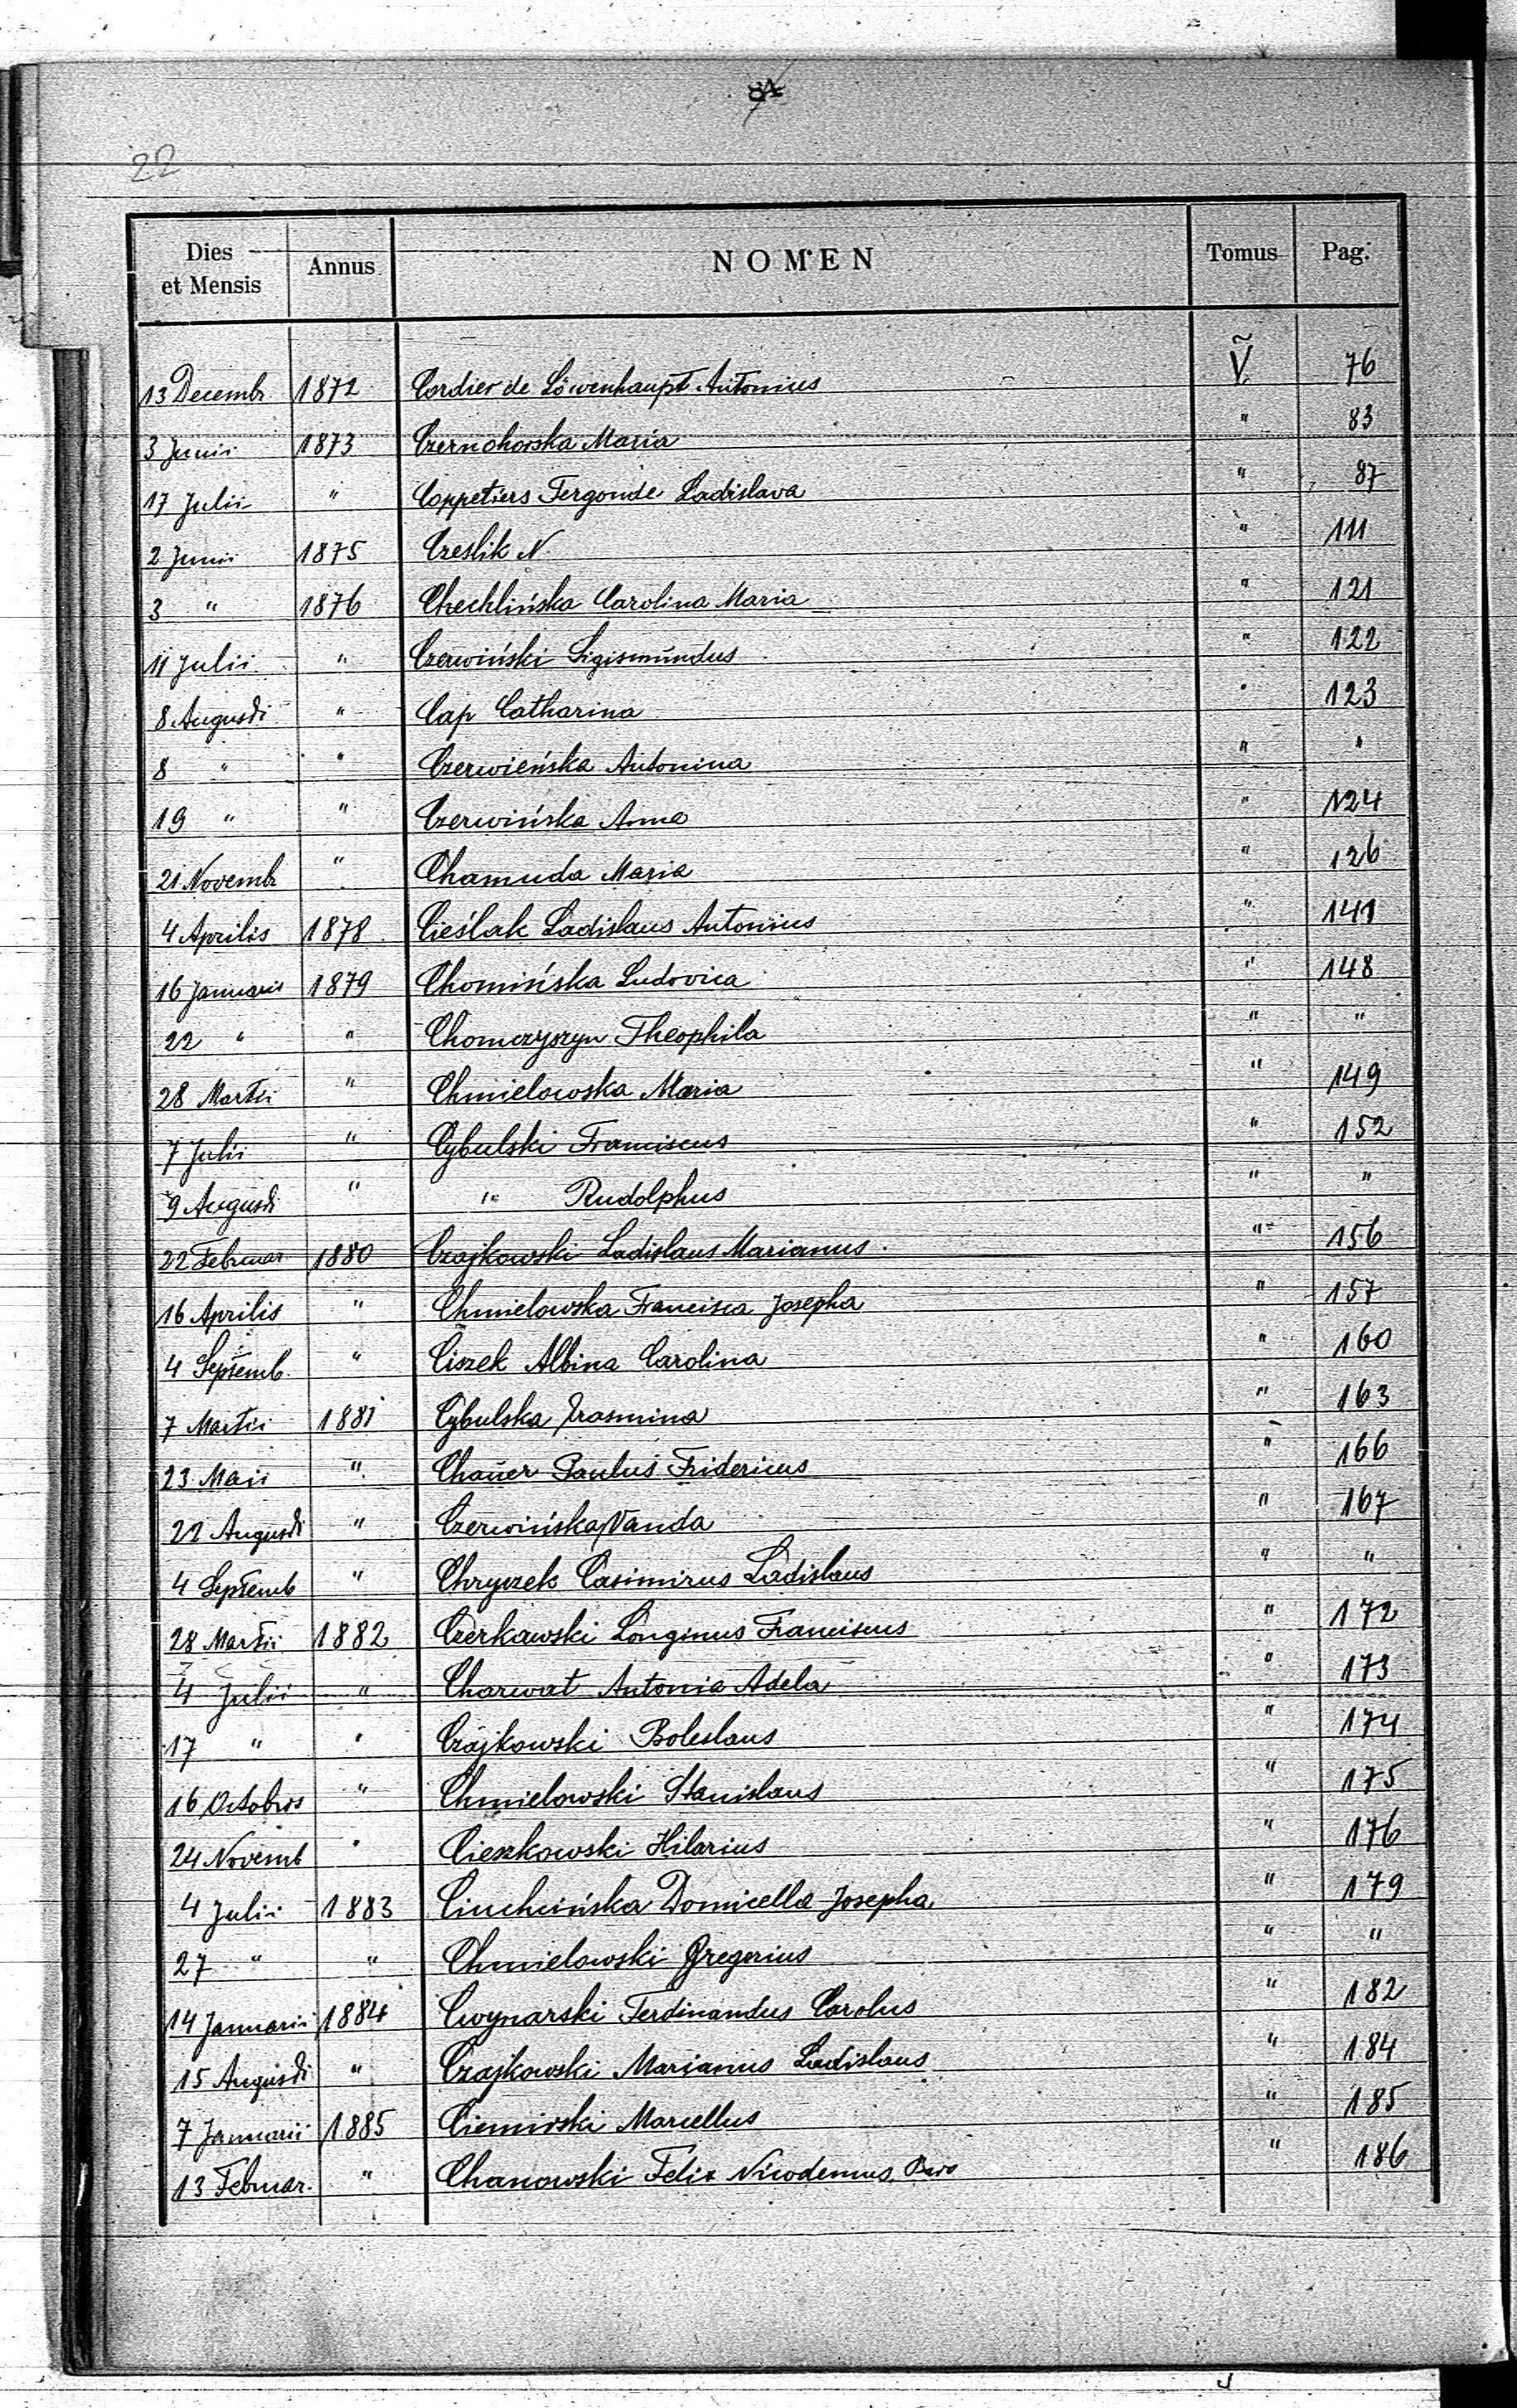 84
22
Dies et Mensis Annus NOMEN Tomus Pag.
13 Decembr. 1872 Cordier de Löwenhaupt Antonius V. 76
3 Junii 1873 Czernohorska Maria " 83
17 Julii " Coppetiers Tergonde Ladislava " 87
2 Junii 1875 Czeslik N. " 111
3 " 1876 Chechlińska Carolina Maria " 121
11 Julii " Czerwiński Sigismundus " 122
8 Augusti " Cap Catharina " 123
8 " " Czerwieńska Antonina " "
19 " " Czerwińska Anna " 124
21 Novembr " Chamuda Maria " 126
4 Aprilis 1878 Cieślak Ladislaus Antonius " 141
16 Januaris 1879 Chomińska Ludovica " 148
22 " " Chomczyszyn Theophila " "
28 Martii " Chmielowska Maria " 149
7 Julii " Cybulski Franciscus " 152
9 Augusti " " Rudolphus " "
22 Februar 1880 Czajkowski Ladislaus Marianus " 156
16 Aprilis " Chmielowska Francisca Josepha " 157
4 Septemb. " Ciszek Albina Carolina " 160
7 Martii 1881 Cybulska " 163
23 Maii " Chauer Paulus Fridericus " 166
22 Augusti " Czerwińska Vanda " 167
4 Septemb " Chryczek Casimirus Ladislaus " "
28 Martii 1882 Czerkawski Longinus Franciscus " 172
4 Julii " Charwat Antonia Adela " 173
17 " " Czajkowski Boleslaus " 174
16 Octobris " Chmielowski Stanislaus " 175
24 Novemb " Cieszkowski Hilarius " 176
4 Julii 1883 Ciuchcińska Domicella Josepha " 179
27 " " Chmielowski Gregorius " "
14 Januarii 1884 Cwynarski Ferdinandus Carolus " 182
15 Augusti " Czajkowski Marianus Ladislaus " 184
7 Januarii 1885 Ciemirski Marcellus " 185
13 Februar. " Chanowski Felix Nicodemus " 186